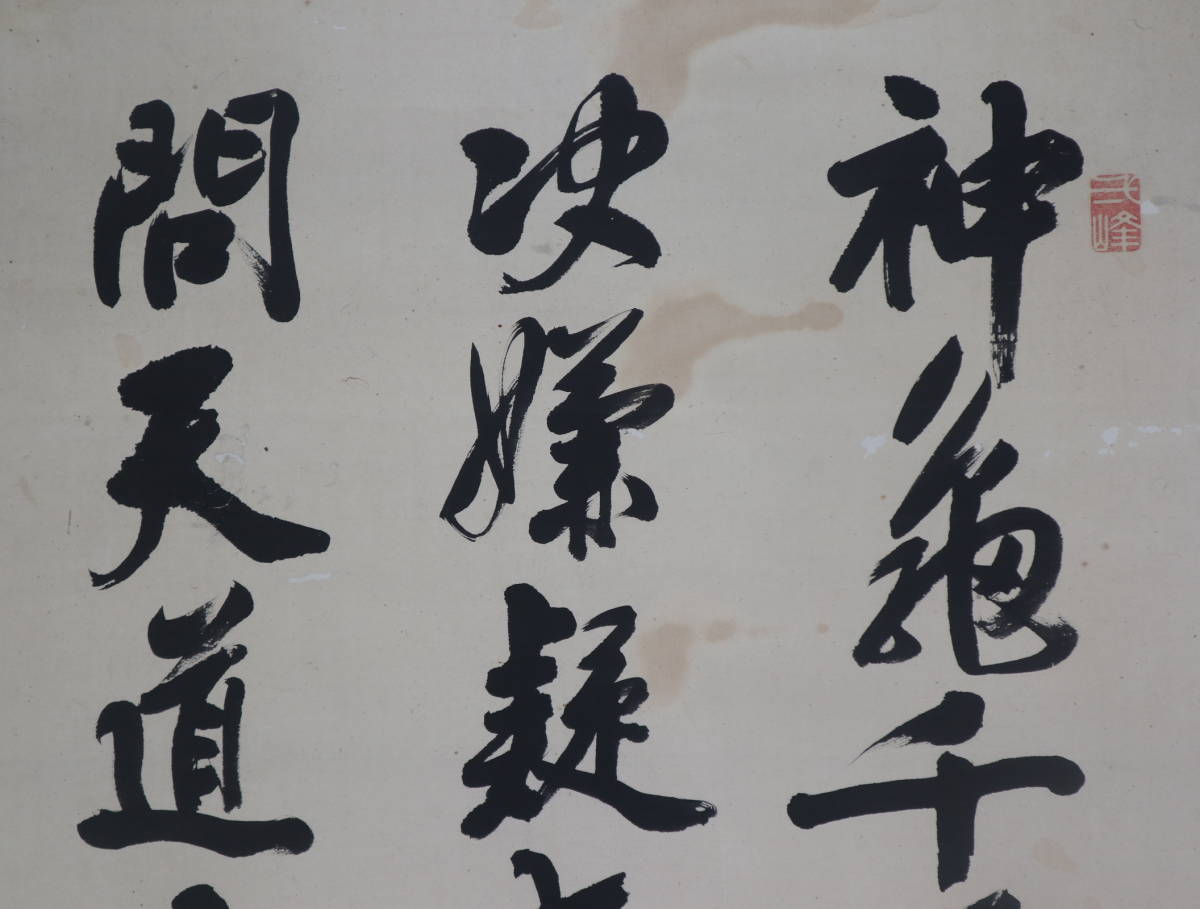 神龜千
決嫌疑
問天道
弍峰